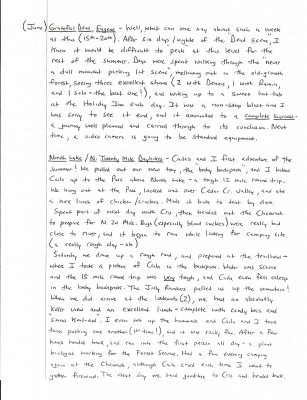 (June) Grateful Dead, Eugene - Well, what can one say about such a week
as this (15th-20th). After six days/nights of the Dead Scene, I
knew it would be difficult to peak at this level for the
rest of the summer. Days were spent walking through the "never
a dull moment parking lot scene", mellowing out in the old-growth
forest, seeing three excellent shows (2 with Deanna, 1 with
and 1 solo - the best one!), and waking up to a sauce hot tub
at the Holiday Inn each day. It was a non-stop blast and I
was sorry to see it end, and it amounted to a complete success -
a journey well planned and carried through to its conclusion. Next
time, a video camera is going to be standard equipment.
North Lake / N. Twenty Mile Daytrips - and I first adventure of the
Summer! We pulled out our new toy, the baby backpack, and I hiked
up to the Pass above North Lake - a tough 12 mile round trip.
We hung out at the Pass, looked out over Cedar Cr. valley, and ate
a nice lunch of chicken/crackers. Made it back to beat by dark.
Spent part of next day with Cro, then headed out the Chewuch
to prepare for N. 20 Mile. Bugs (especially blood suckers) were really bad
close to river, and it began to rain while looking for camping site.
(a really rough day - oh)
Saturday we drove up a rough road, and prepared at the trailhead -
where I took a picture of in the backpack. Water was scarce
and the 15 mile round trip was very tough, and even fell asleep
in the baby backpack. The Jolly Ranchers pulled us up the mountain!
When we did arrive at the lookouts (2), we had an absolutely
killer view and an excellent lunch - complete with candy bars and
I even set up the hammock and and I took
turns pushing one another (1st time!), and it was really fun. After a few
hours headed back, and ran into the first person all day - a plant
biologist working for the Forest Service. Had a fun evening camping
again at the Chewuch, although cried each time I went to
gather firewood. The next day we said goodbye to Cro and headed back.